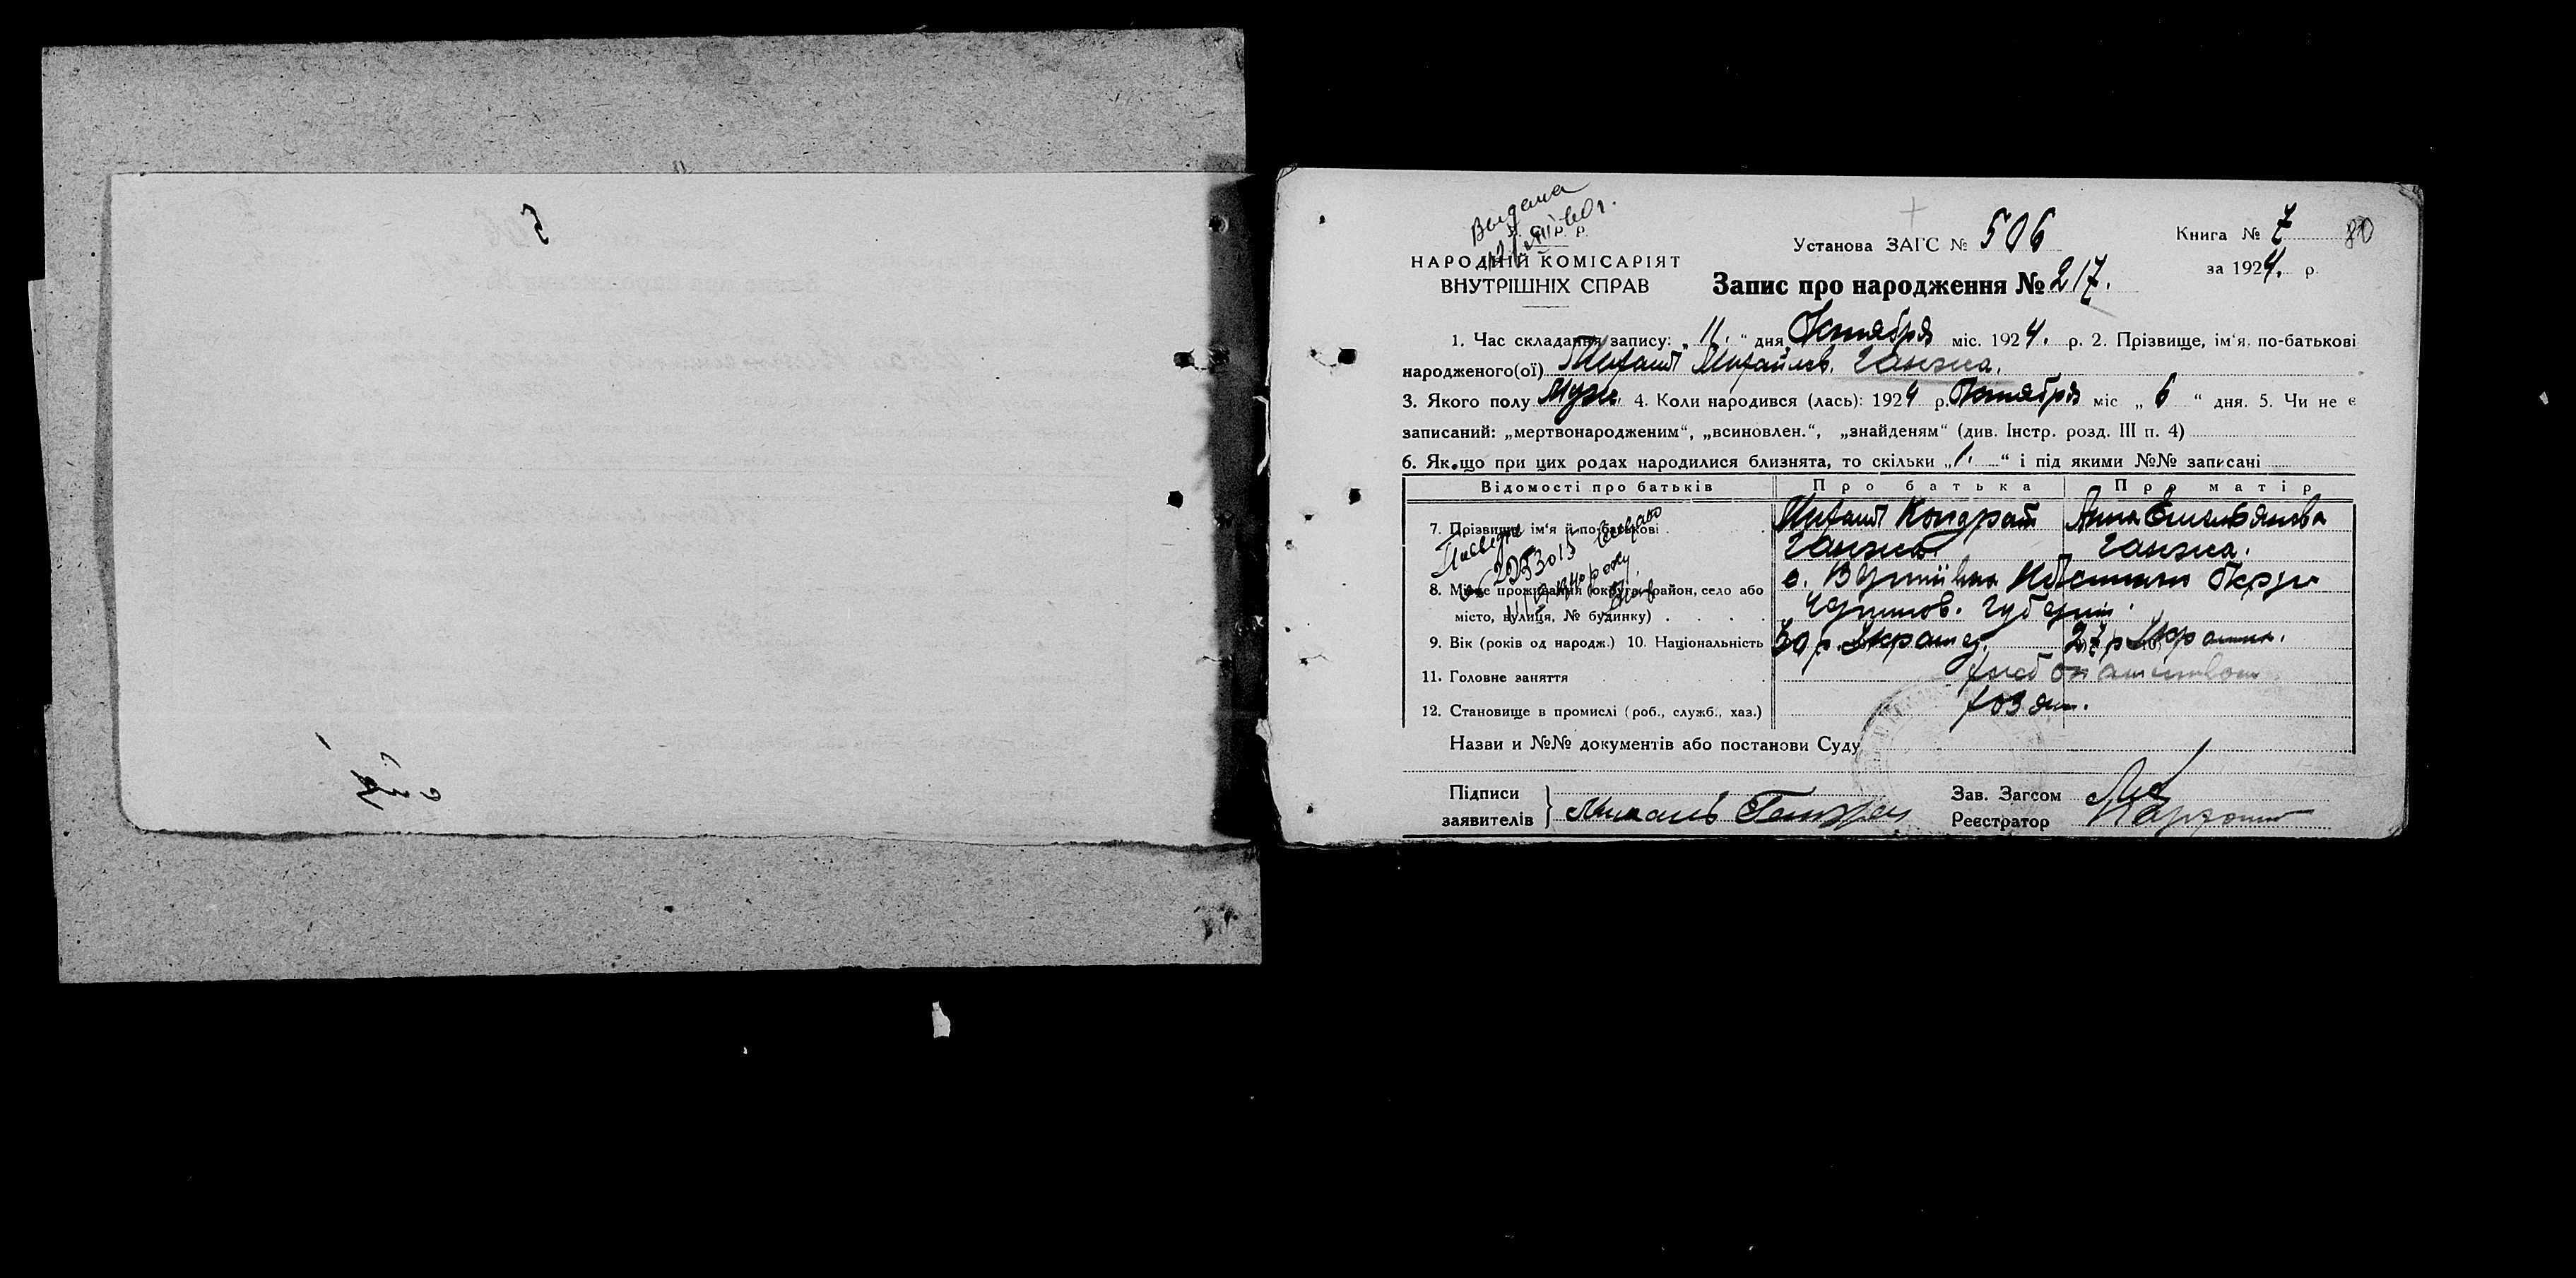 Выдана
У. С. Р. Р.
НАРОДНІЙ КОМІСАРІЯТ
ВНУТРІШНІХ СПРАВ
Установа ЗАГС № 506
Книга № 7 80
за 1924. р.
Запис про народження № 217.
1. Час складання запису: „11.“ дня Октября міс. 1924. р. 2. Прізвище, ім'я, по-батькові
народженого(ої) Михаил Михайлов. Ганжа.
3. Якого полу Муж. 4. Коли народився (лась): 1924 р. Октября міс „6“ дня. 5. Чи не є
записаний: „мертвонародженим“, „всиновлен.“, „знайденям“ (див. Інстр. розд. III п. 4)
6. Як-що при цих родах народилися близнята, то скільки „1.“ і під якими №№ записані
Відомості про батьків Про батька Про матір
7. Прізвище, ім'я й по-батькові Михаил Кондрат Анна Емельянова
Ганжа Ганжа.
8. Місце проживання (округа, район, село або с. Вертіївка Округи
місто, вулиця, № будинку) Чернигов. губернии.
9. Вік (років од народж.) 10. Національність 30 р. Украинец. 27 р. Украинка.
11. Головне заняття хлебопашеством
12. Становище в промислі (роб., служб., хаз.) хозяин.
Назви и №№ документів або постанови Суду
Підписи
заявителів Михаил Ганжа
Зав. Загсом
Реєстратор